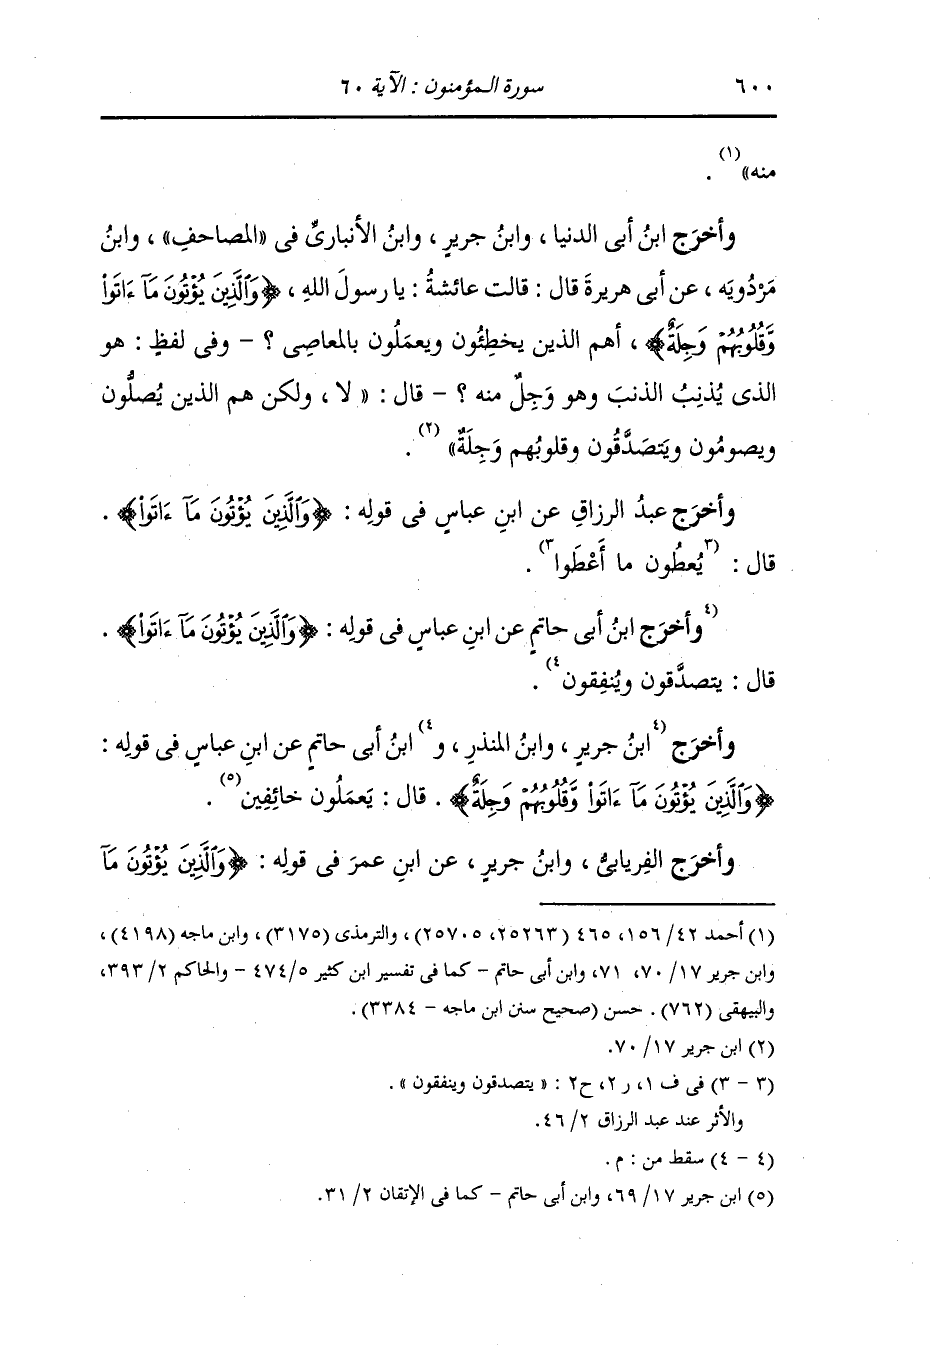 ٦٠٠ سورة المؤمنون : الآية ٦٠
منه»(١) .
وأخرَج ابنُ أبى الدنيا ، وابنُ جريرٍ ، وابنُ الأنبارىِّ فى «المصاحفِ» ، وابنُ
مَرْدُويَه ، عن أبى هريرةَ قال : قالت عائشةُ : يا رسولَ اللهِ ، ﴿وَٱلَّذِينَ يُؤْتُونَ مَآ ءَاتَواْ
وَّقُلُوبُهُمْ وَجِلَةٌ﴾ ، أهم الذين يخطِئُون ويعمَلُون بالمعاصِى ؟ - وفى لفظٍ : هو
الذى يُذنِبُ الذنبَ وهو وَجِلٌ منه ؟ - قال : « لا ، ولكن هم الذين يُصلُّون
ويصومُون ويَتصَدَّقُون وقلوبُهم وَجِلَةٌ»(٢) .
وأخرَج عبدُ الرزاقِ عن ابنِ عباسٍ فى قولِه : ﴿وَٱلَّذِينَ يُؤْتُونَ مَآ ءَاتَواْ﴾ .
قال : (٣يُعطُون ما أَعْطَوا٣) .
(٤وأخرَج ابنُ أبى حاتمٍ عن ابنِ عباسٍ فى قولِه : ﴿وَٱلَّذِينَ يُؤْتُونَ مَآ ءَاتَواْ﴾ .
قال : يتصدَّقون ويُنفِقون٤) .
وأخرَج (٤ابنُ جريرٍ ، وابنُ المنذرِ ، و٤)ابنُ أبى حاتمٍ عن ابنِ عباسٍ فى قولِه :
﴿وَٱلَّذِينَ يُؤْتُونَ مَآ ءَاتَواْ وَّقُلُوبُهُمْ وَجِلَةٌ﴾ . قال : يَعمَلُون خائِفِين(٥) .
وأخرَج الفِريابىُّ ، وابنُ جريرٍ ، عن ابنِ عمرَ فى قولِه : ﴿وَٱلَّذِينَ يُؤْتُونَ مَآ
(١) أحمد ٤٢/ ١٥٦، ٤٦٥ (٢٥٢٦٣، ٢٥٧٠٥)، والترمذى (٣١٧٥)، وابن ماجه (٤١٩٨)،
وابن جرير ١٧/ ٧٠، ٧١، وابن أبى حاتم - كما فى تفسير ابن كثير ٥/ ٤٧٤ - والحاكم ٢/ ٣٩٣،
والبيهقى (٧٦٢) . حسن (صحيح سنن ابن ماجه - ٣٣٨٤) .
(٢) ابن جرير ١٧/ ٧٠.
(٣ - ٣) فى ف ١، ر ٢، ح٢ : « يتصدقون وينفقون » .
والأثر عند عبد الرزاق ٢/ ٤٦.
(٤ - ٤) سقط من : م .
(٥) ابن جرير ١٧/ ٦٩، وابن أبى حاتم - كما فى الإتقان ٢/ ٣١.